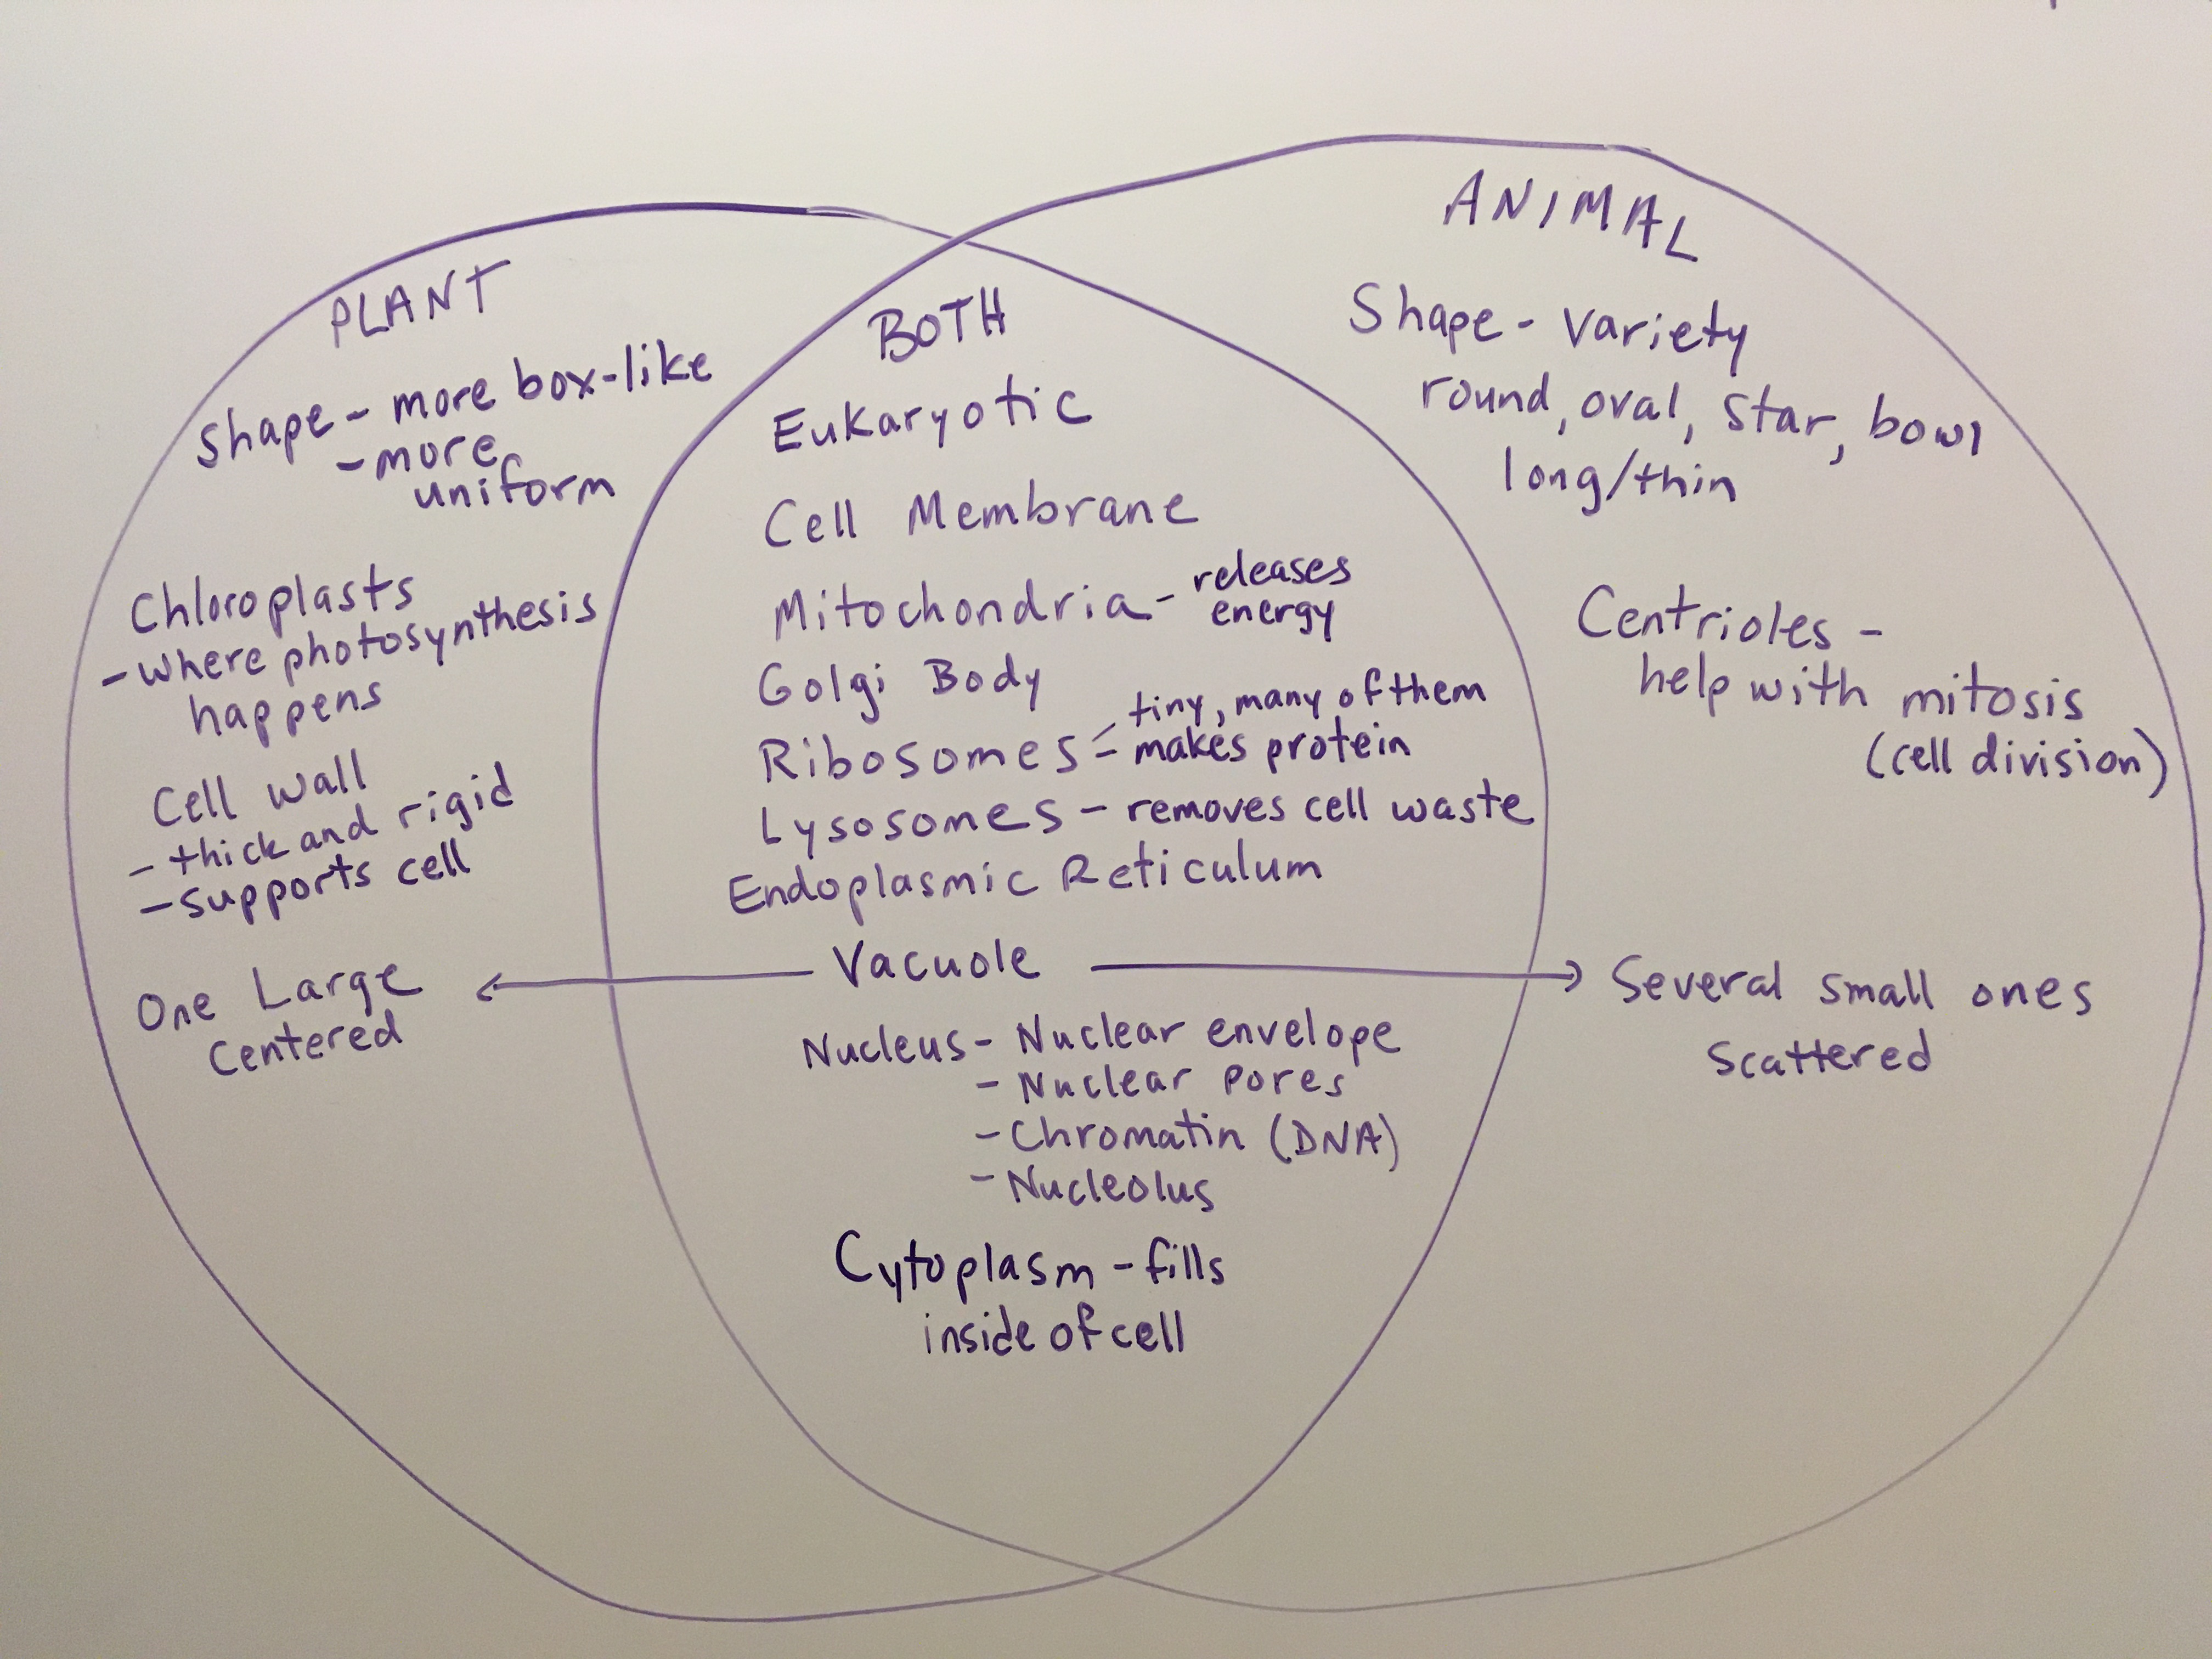 PLANT
Shape - more box-like
- more
uniform
Chloroplasts
- where photosynthesis
happens
Cell wall
- thick and rigid
- supports cell
One Large
Centered
BOTH
Eukaryotic
Cell Membrane
Mitochondria - releases
energy
Golgi Body
Ribosomes - tiny, many of them
- makes protein
Lysosomes - removes cell waste
Endoplasmic Reticulum
← Vacuole →
Nucleus - Nuclear envelope
- Nuclear pores
- Chromatin (DNA)
- Nucleolus
Cytoplasm - fills
inside of cell
ANIMAL
Shape - variety
round, oval, star, bowl
long/thin
Centrioles -
help with mitosis
(cell division)
Several small ones
scattered